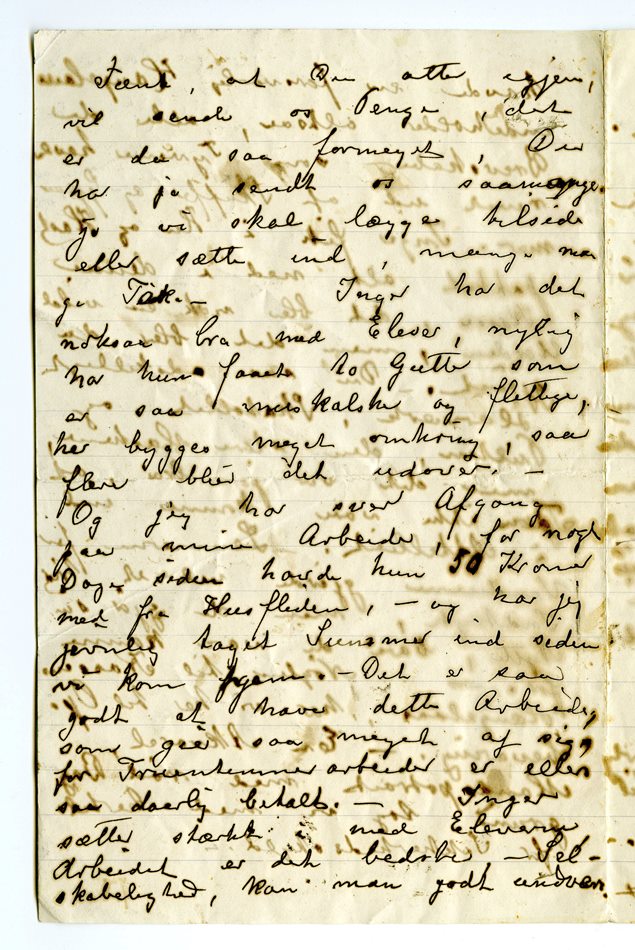 Tænk, at Du atter igjen,
vil sende os Penge, det
er da saa formeget, Du
har jo sendt os saamange.
Jo vi skal lægge tilside
eller sætte ind, mange ma
ge Tak. – Inger har det
noksaa bra med Elever, nylig
har hun faaet to Gutter som
er saa musikalske og flittige,
her bygges meget omkring, saa
flere blir det udover. –
Og jeg har svær Afgang
paa mine Arbeider, for nogle
Dage siden havde hun 50 Kroner
med fra Husfliden, – og har jeg
jevnlig taget Summer ind siden
vi kom hjem. – Det er saa
godt at have dette Arbeide,
som giør saa meget af sig,
for Fruentimmerarbeider er ellers
saa daarlig betalt. – Inger
sætter stærkt med Eleverne,
Arbeidet er det bedste, – Sel-
skabelighed, kan man godt undvære.